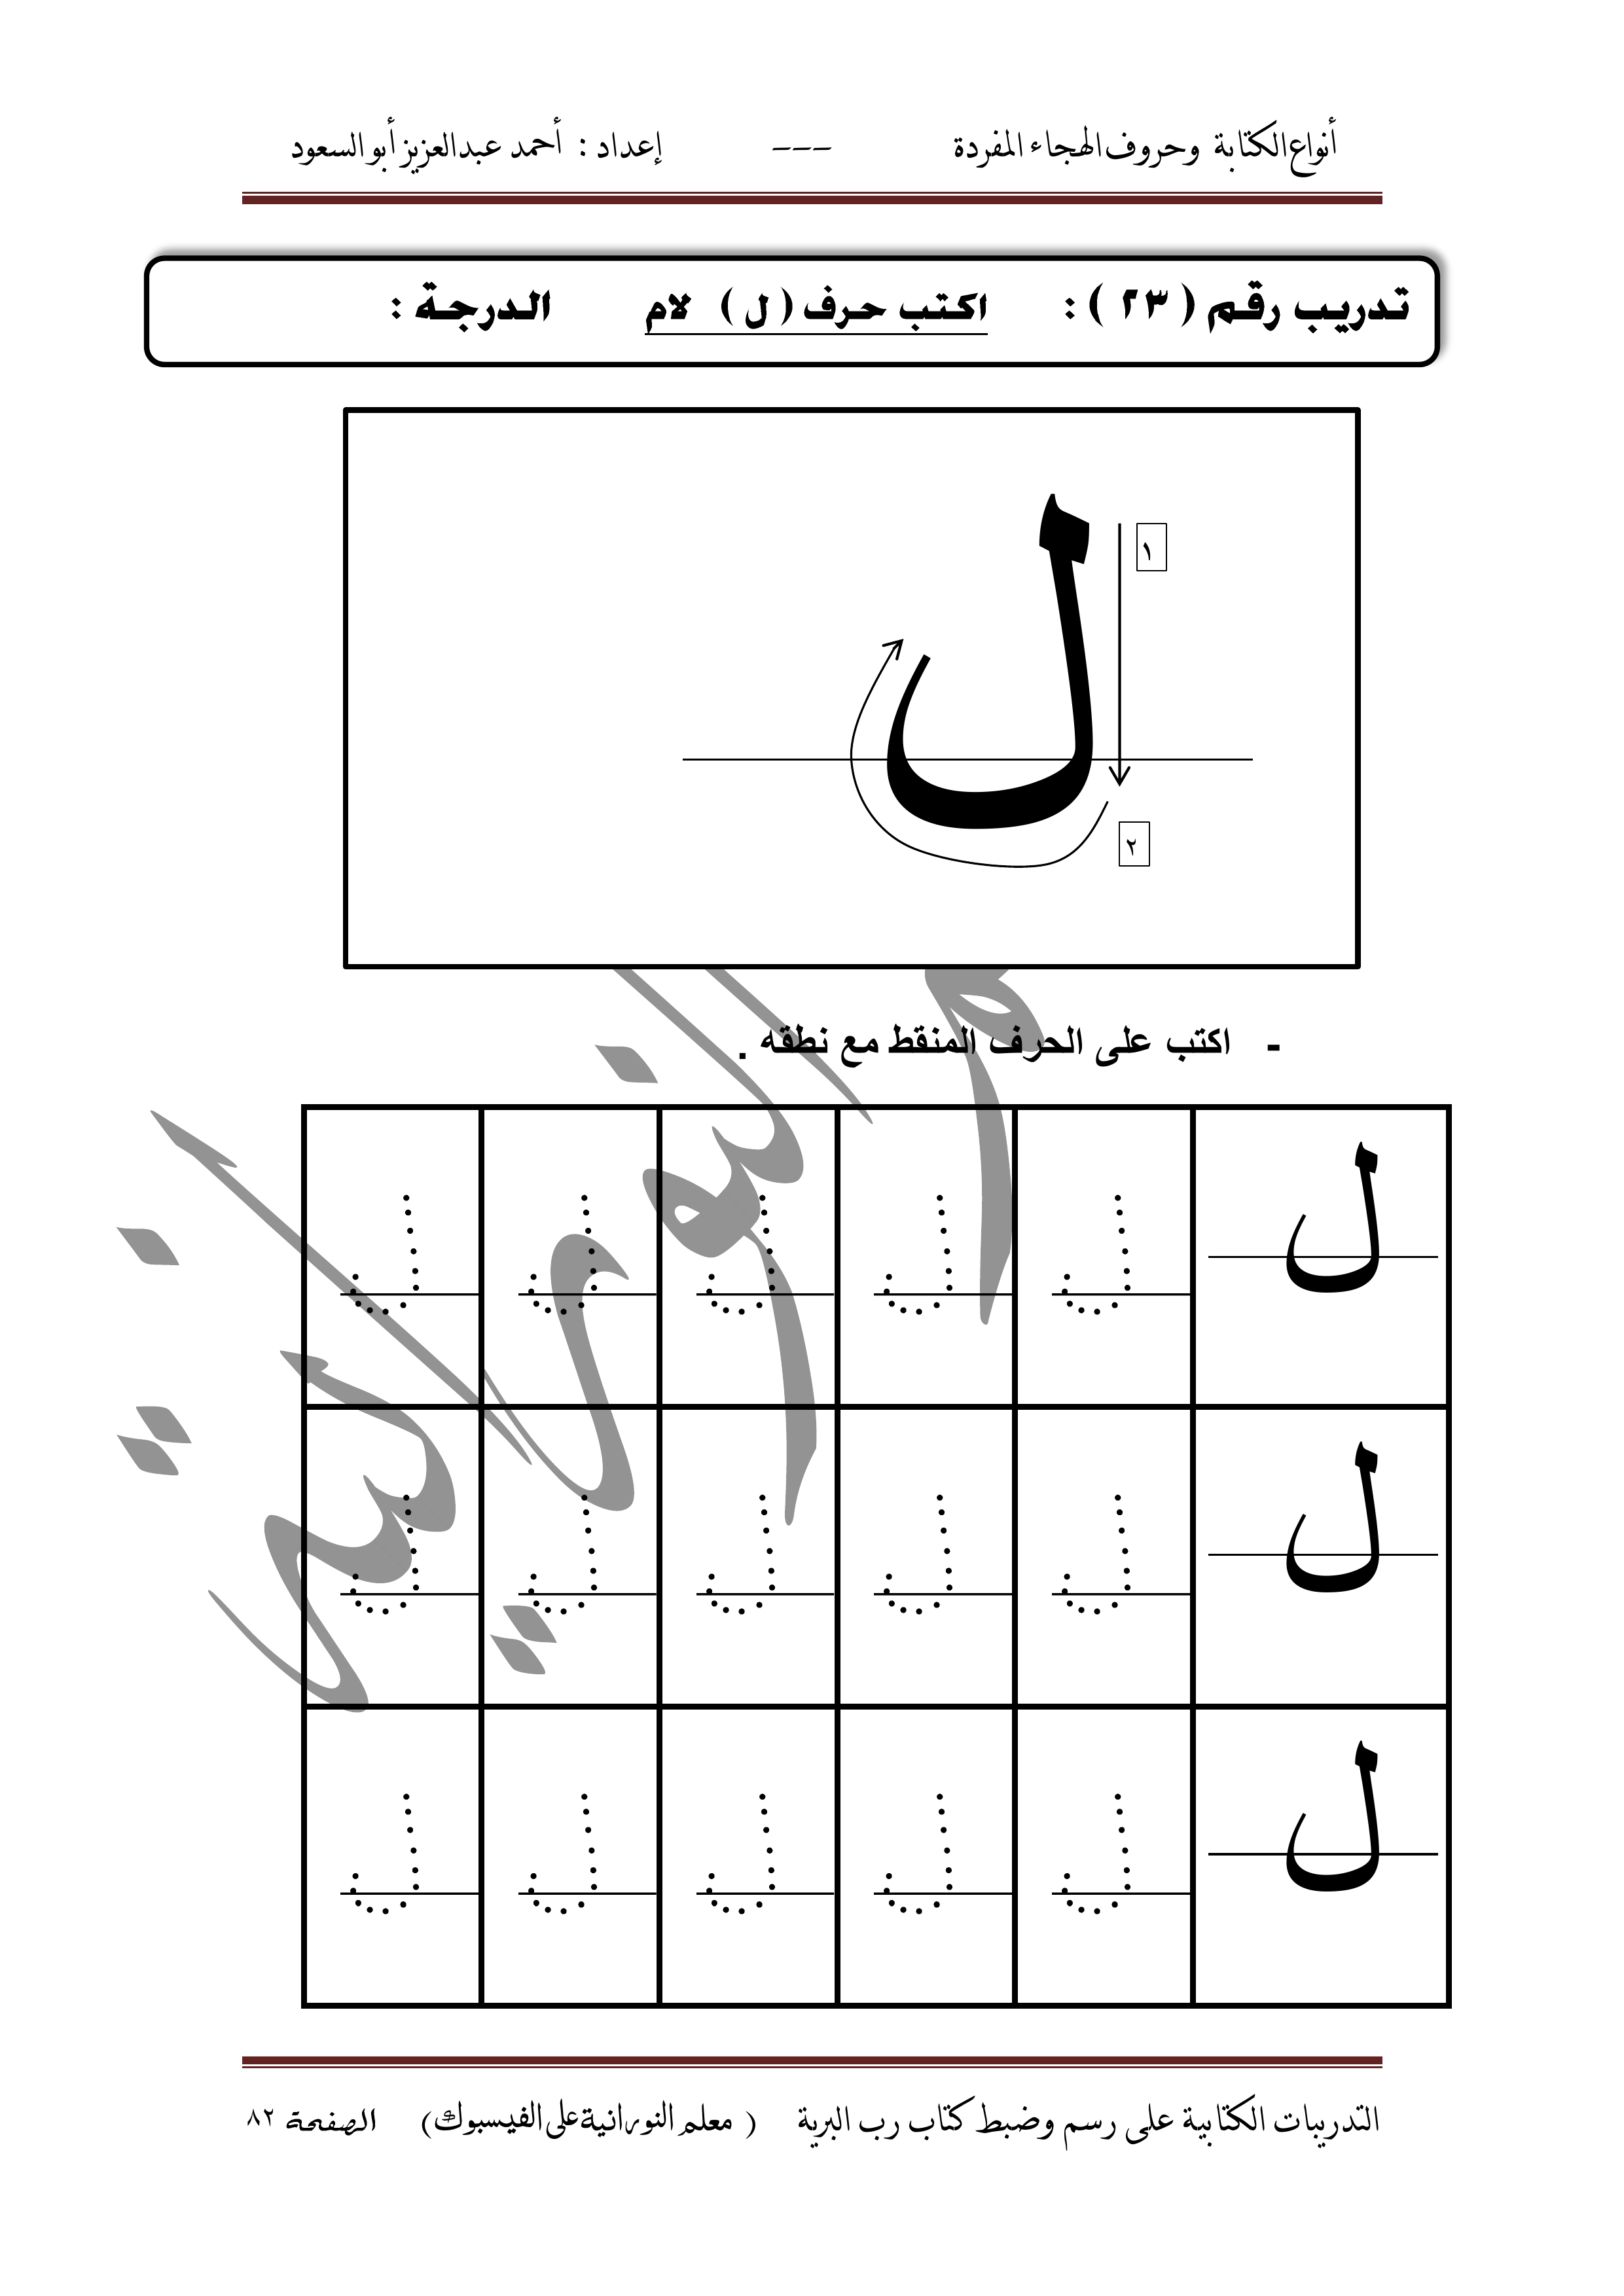 أنواع الكتابة وحروف الهجاء المفردة --- إعداد : أحمد عبدالعزيز أبو السعود
تدريب رقم ( ٢٣ ) : اكتب حرف ( ل ) لام الدرجة :
ل
١
٢
- اكتب على الحرف المنقط مع نطقه .
ل ل ل ل ل ل
ل ل ل ل ل ل
ل ل ل ل ل ل
التدريبات الكتابية على رسم وضبط كتاب رب البرية ( معلم النورانية على الفيسبوك) الصفحة ٨٢